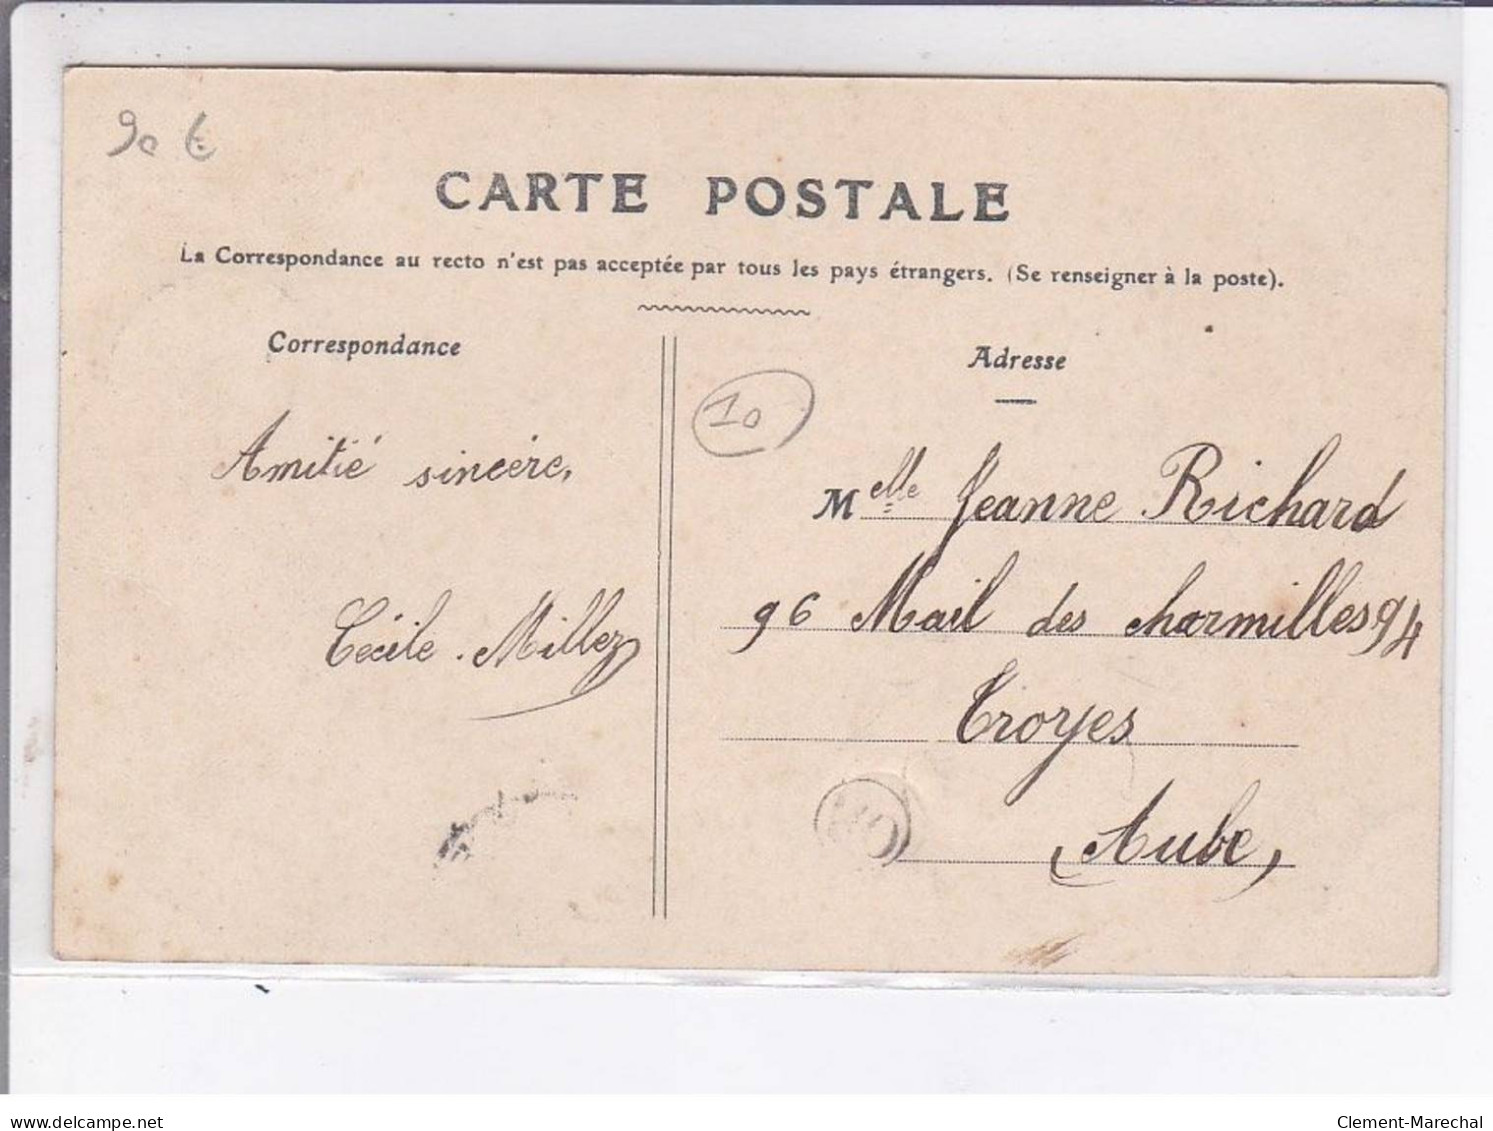 90 €
CARTE POSTALE
La Correspondance au recto n'est pas acceptée par tous les pays étrangers. (Se renseigner à la poste).
Correspondance
Amitié sincère,
Cécile Millez
Adresse
10
Melle Jeanne Richard
96 Mail des charmilles 94
Troyes
(Aube)
delcampe.net
Clement-Marechal